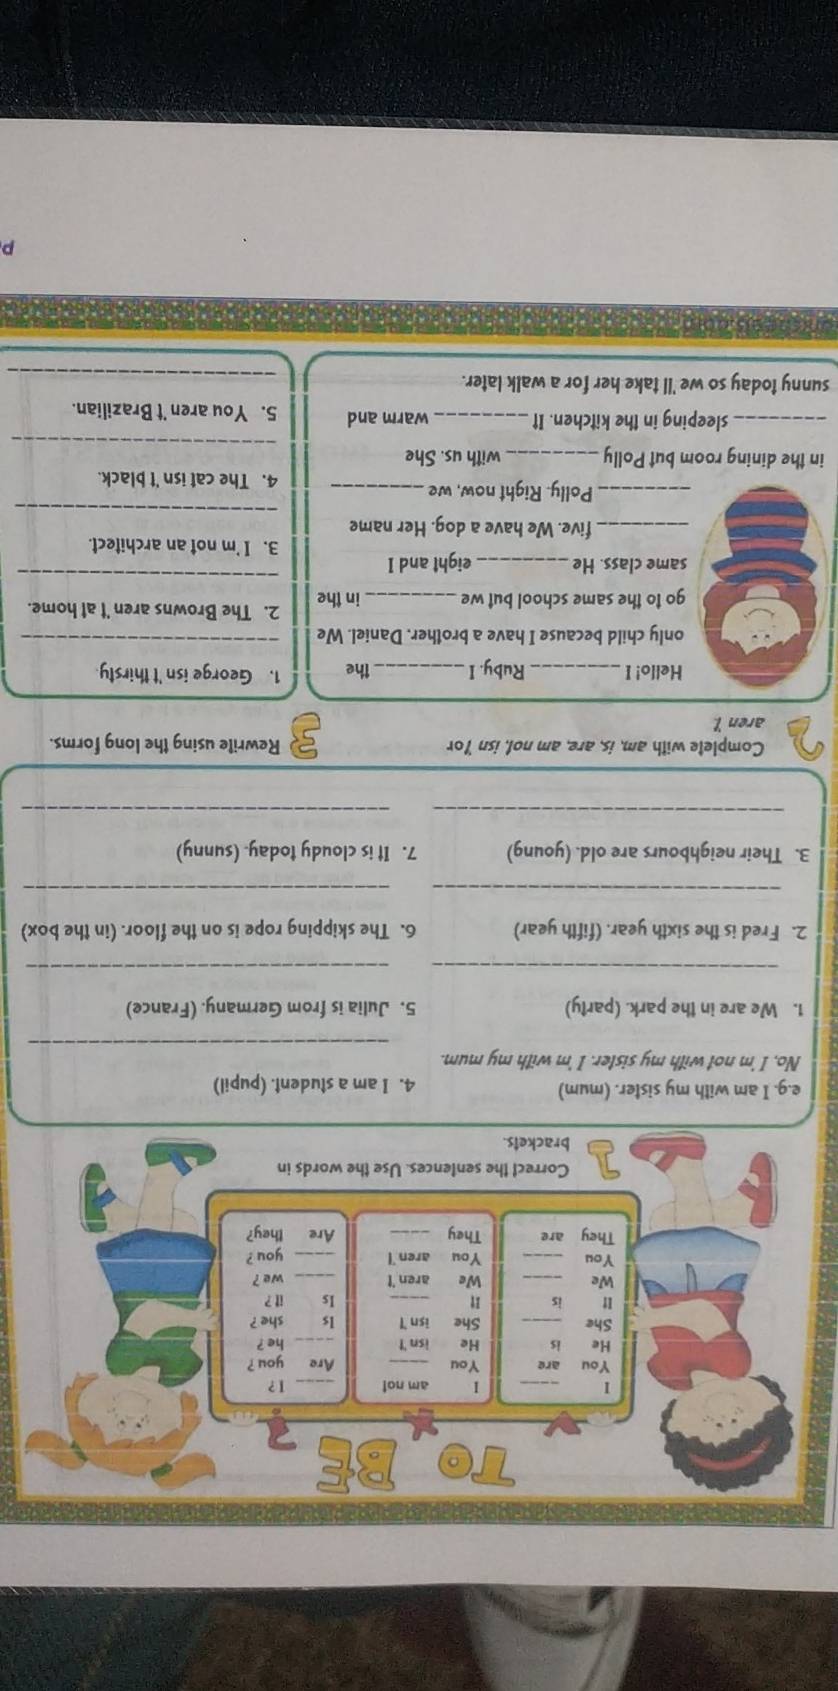 TO BE
I ____
You are
He is
She ____
It is
We ____
You ____
They are
I am not
You ____
He isn't
She isn't
It ____
We aren't
You aren't
They ____
____ I?
Are you?
____ he?
Is she?
Is it?
____ we?
____ you?
Are they?
1 Correct the sentences. Use the words in
brackets.
e.g. I am with my sister. (mum)
No, I'm not with my sister. I'm with my mum.
1. We are in the park. (party)
2. Fred is the sixth year. (fifth year)
3. Their neighbours are old. (young)
4. I am a student. (pupil)
5. Julia is from Germany. (France)
6. The skipping rope is on the floor. (in the box)
7. It is cloudy today. (sunny)
2 Complete with am, is, are, am not, isn't or
aren't.
Hello! I ________ Ruby. I ________ the
only child because I have a brother, Daniel. We
go to the same school but we ________ in the
same class. He ________ eight and I
________ five. We have a dog. Her name
________ Polly. Right now, we ________
in the dining room but Polly ________ with us. She
________ sleeping in the kitchen. It ________ warm and
sunny today so we'll take her for a walk later.
3 Rewrite using the long forms.
1. George isn't thirsty.
2. The Browns aren't at home.
3. I'm not an architect.
4. The cat isn't black.
5. You aren't Brazilian.